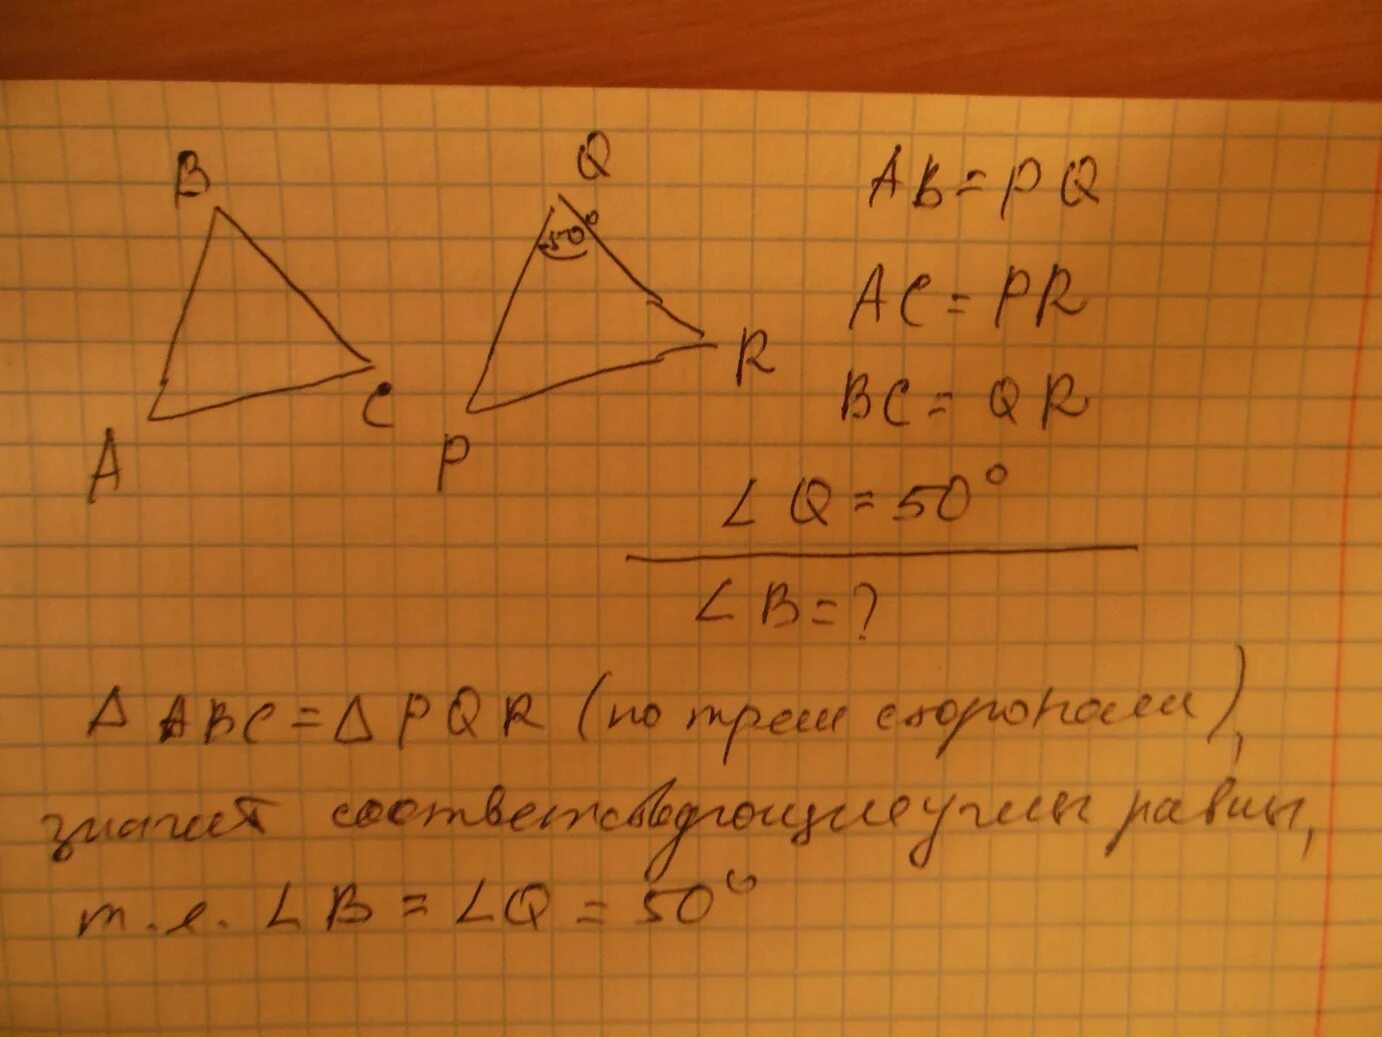 B
Q
50°
A
C
P
R
AB = PQ
AC = PR
BC = QR
∠Q = 50°
∠B = ?
Δ ABC = Δ PQR (по трем сторонам),
значит соответствующие углы равны,
т.е. ∠B = ∠Q = 50°